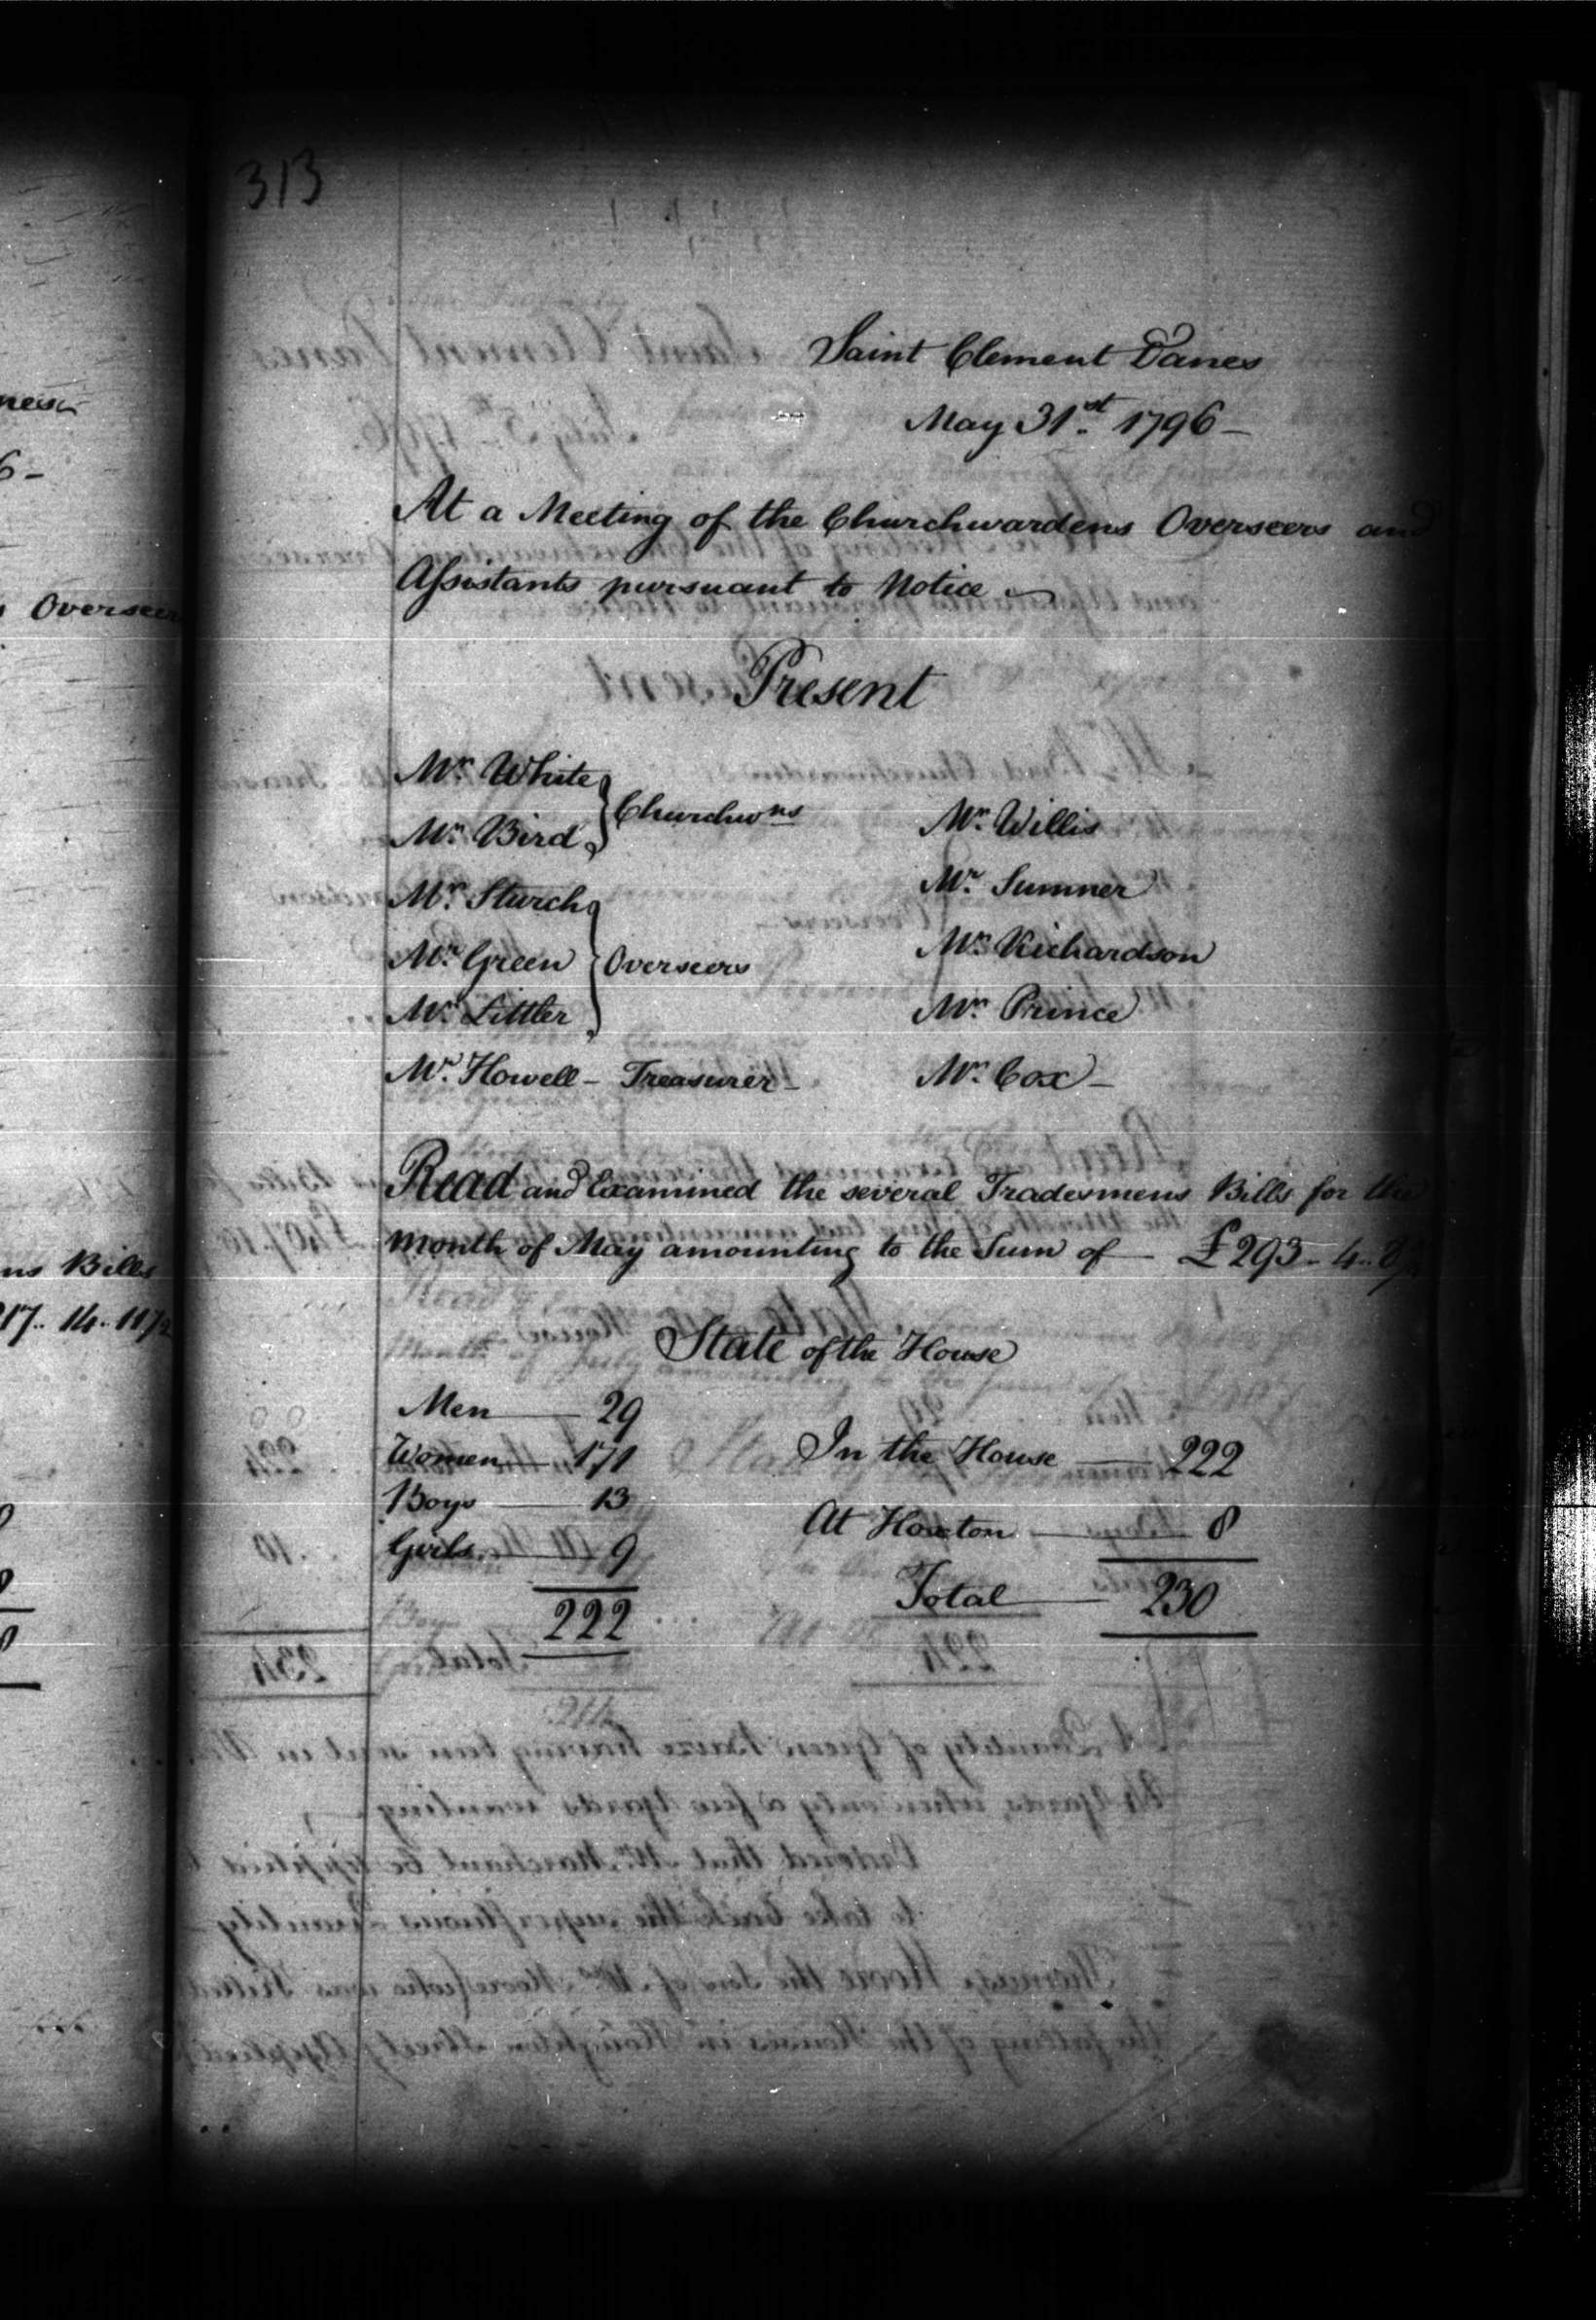 313
Saint Clement Danes
May 31st. 1796 -
At a Meeting of the Churchwardens Overseers and
Assistants pursuant to Notice -
Present
Mr. White } Churchwns
Mr. Bird }
Mr. Willis
Mr. Sturch }
Mr. Green } Overseers
Mr. Littler }
Mr. Sumner
Mr. Richardson
Mr. Prince
Mr. Howell - Treasurer -
Mr. Cox -
Read and Examined the several Tradesmens Bills for the
month of May amounting to the Sum of - £293 - 4..
State of the House
Men 29
Women 171
Boys 13
Girls 9
222
In the House 222
At Hoxton 8
Total 230
Overseers
Bills